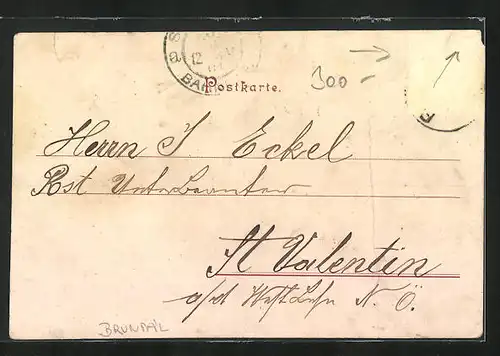 12
BA
Postkarte.
300 -
Herrn J Eckel
Post Unterbeamter
St Valentin
a/d Westbahn N. Ö.